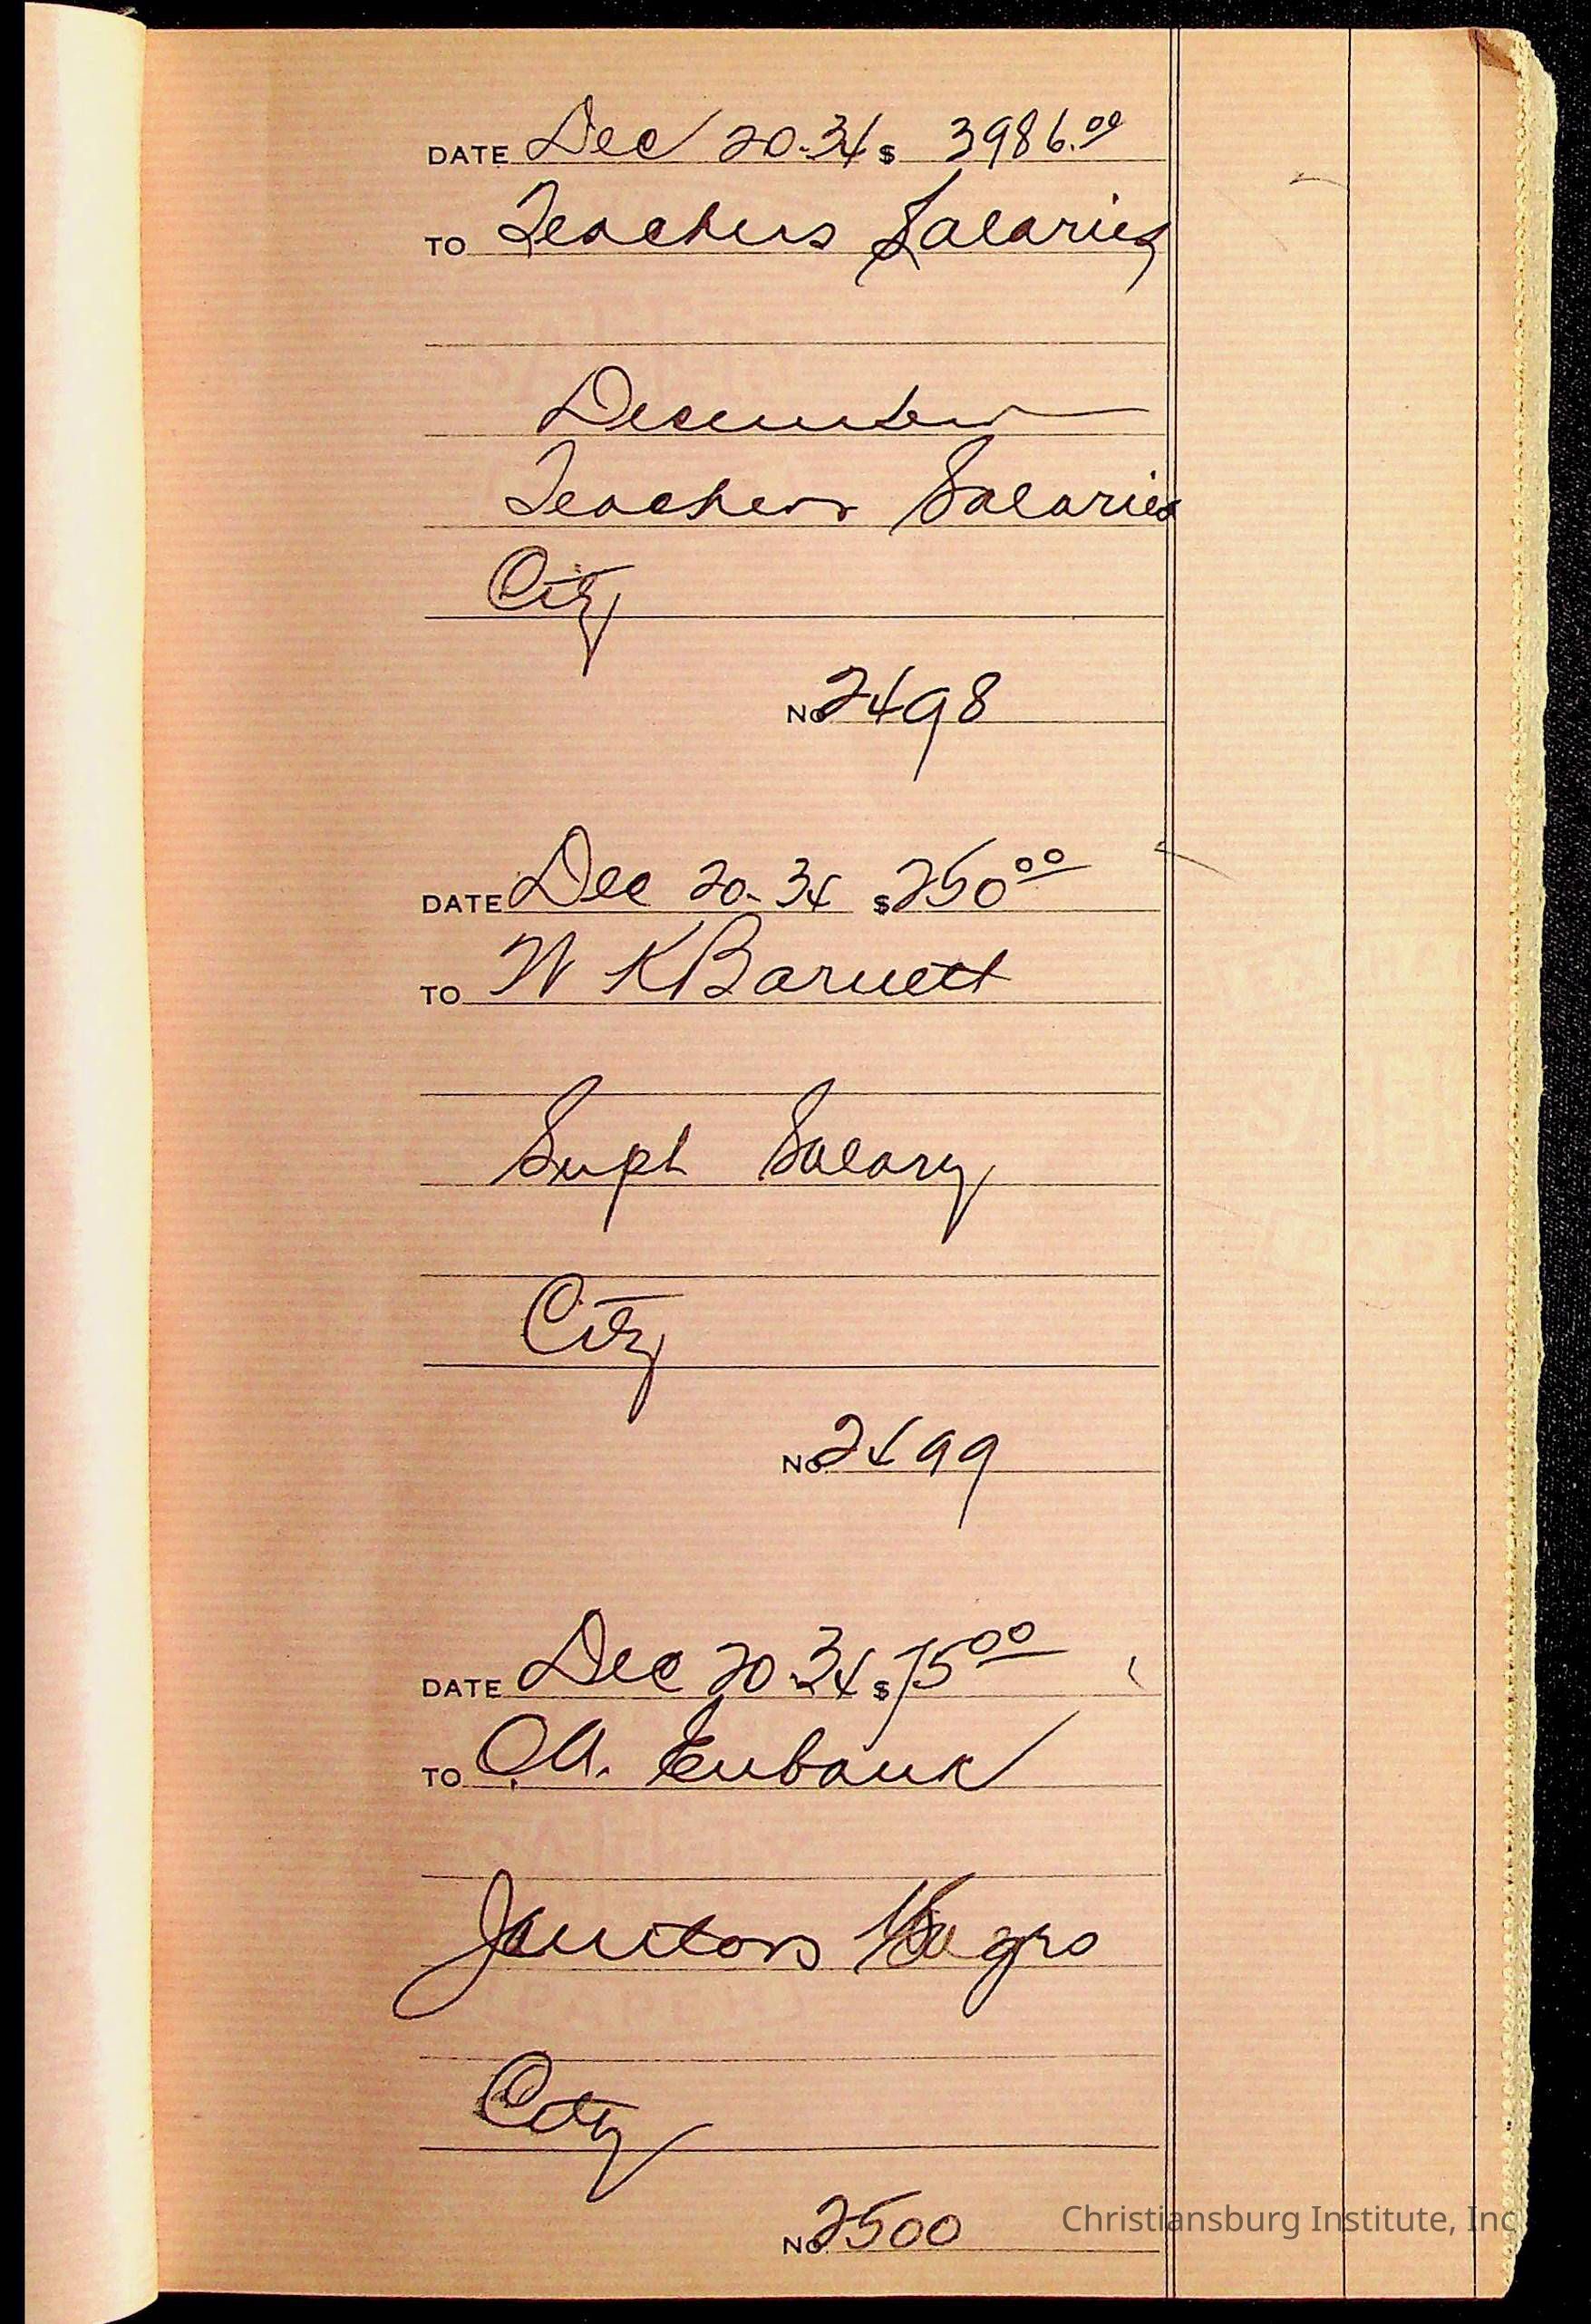 DATE Dec 20-34 $ 3986.00
TO Teachers Salaries
December
Teachers Salaries
City
No. 2498
DATE Dec 20-34 $ 250 00
TO W K Barnett
Supt Salary
City
No. 2499
DATE Dec 20-34 $ 75 00
TO O.A. Eubank
Janitors Negro
City
No. 2500
Christiansburg Institute, Inc